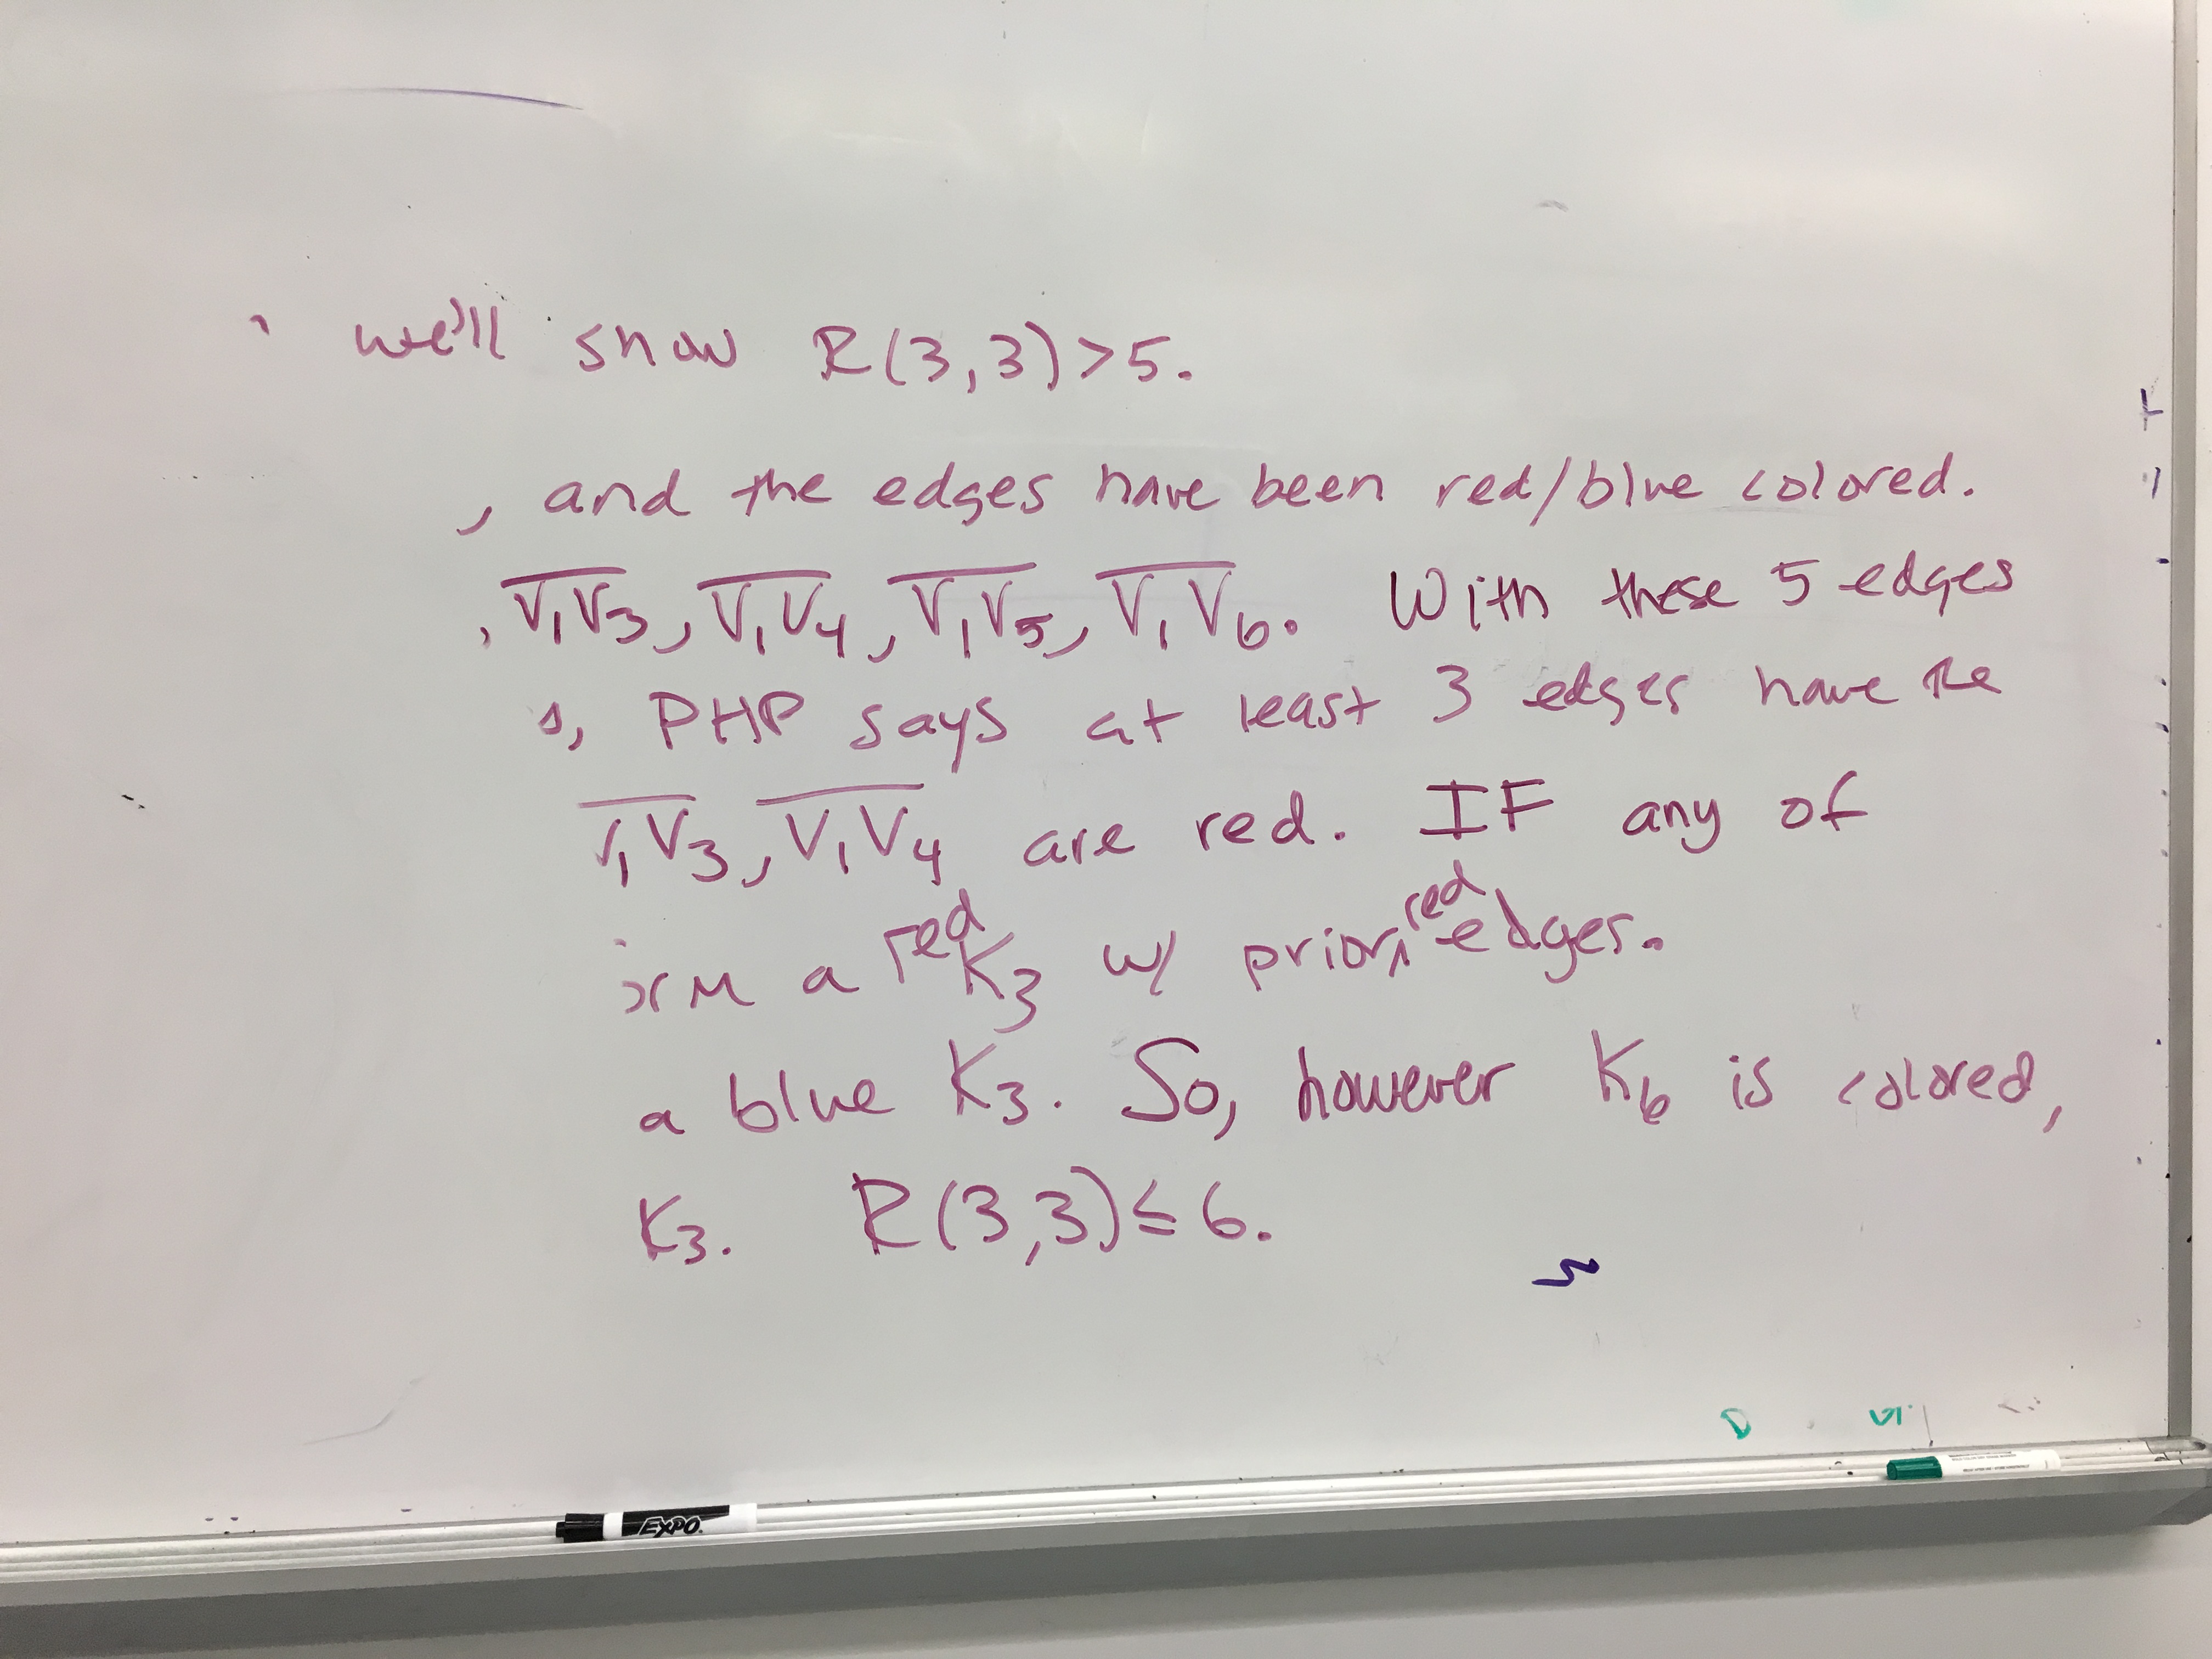 we'll show R(3,3)>5.
, and the edges have been red/blue colored.
, V₁V₃, V₁V₄, V₁V₅, V₁V₆. With these 5 edges
s, PHP says at least 3 edges have the
V₁V₃, V₁V₄ are red. IF any of
orm a red K₃ w/ prior red edges.
a blue K₃. So, however K₆ is colored,
K₃. R(3,3)≤6.
EXPO